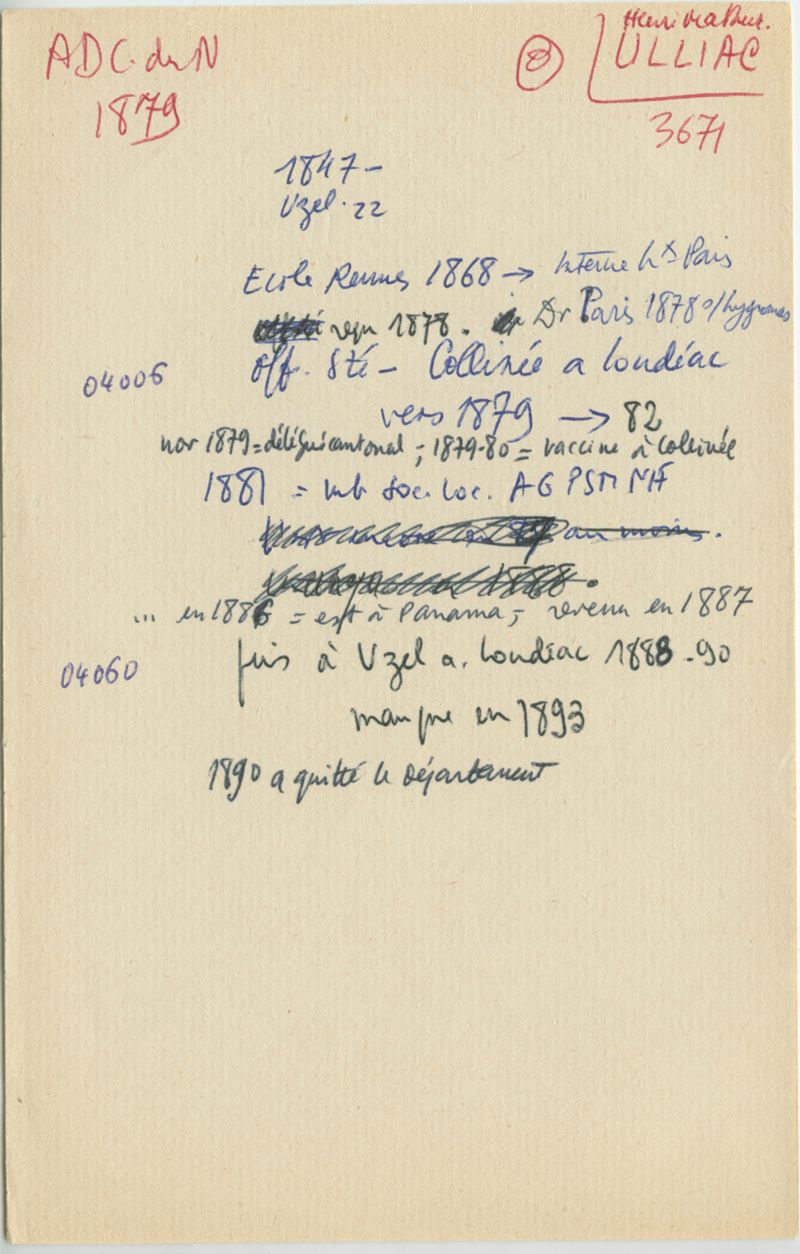 ADC.duN
1879
Henri
ULLIAC
3671
1847-
Uzel.22
Ecole Rennes 1868 → Interne hx Paris
reçu 1878. Dr Paris 1878 s/hygromas
04006
off. Sté - Collinée a Loudéac
vers 1879 → 82
nov 1879 = délégué cantonal ; 1879-80 = vaccine à Collinée
1881 = mb Soc. Loc. AGPSMMF
au moins.
1888.
... en 1886 = est à Panama ; revenu en 1887
04060
puis à Uzel a. Loudéac 1888-90
manque en 1893
1890 a quitté le Département